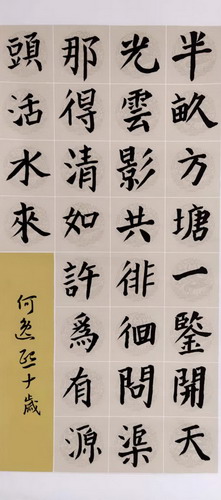 半畝方塘一鑒開天
光雲影共徘徊問渠
那得清如許爲有源
頭活水來
何逸熙十歲